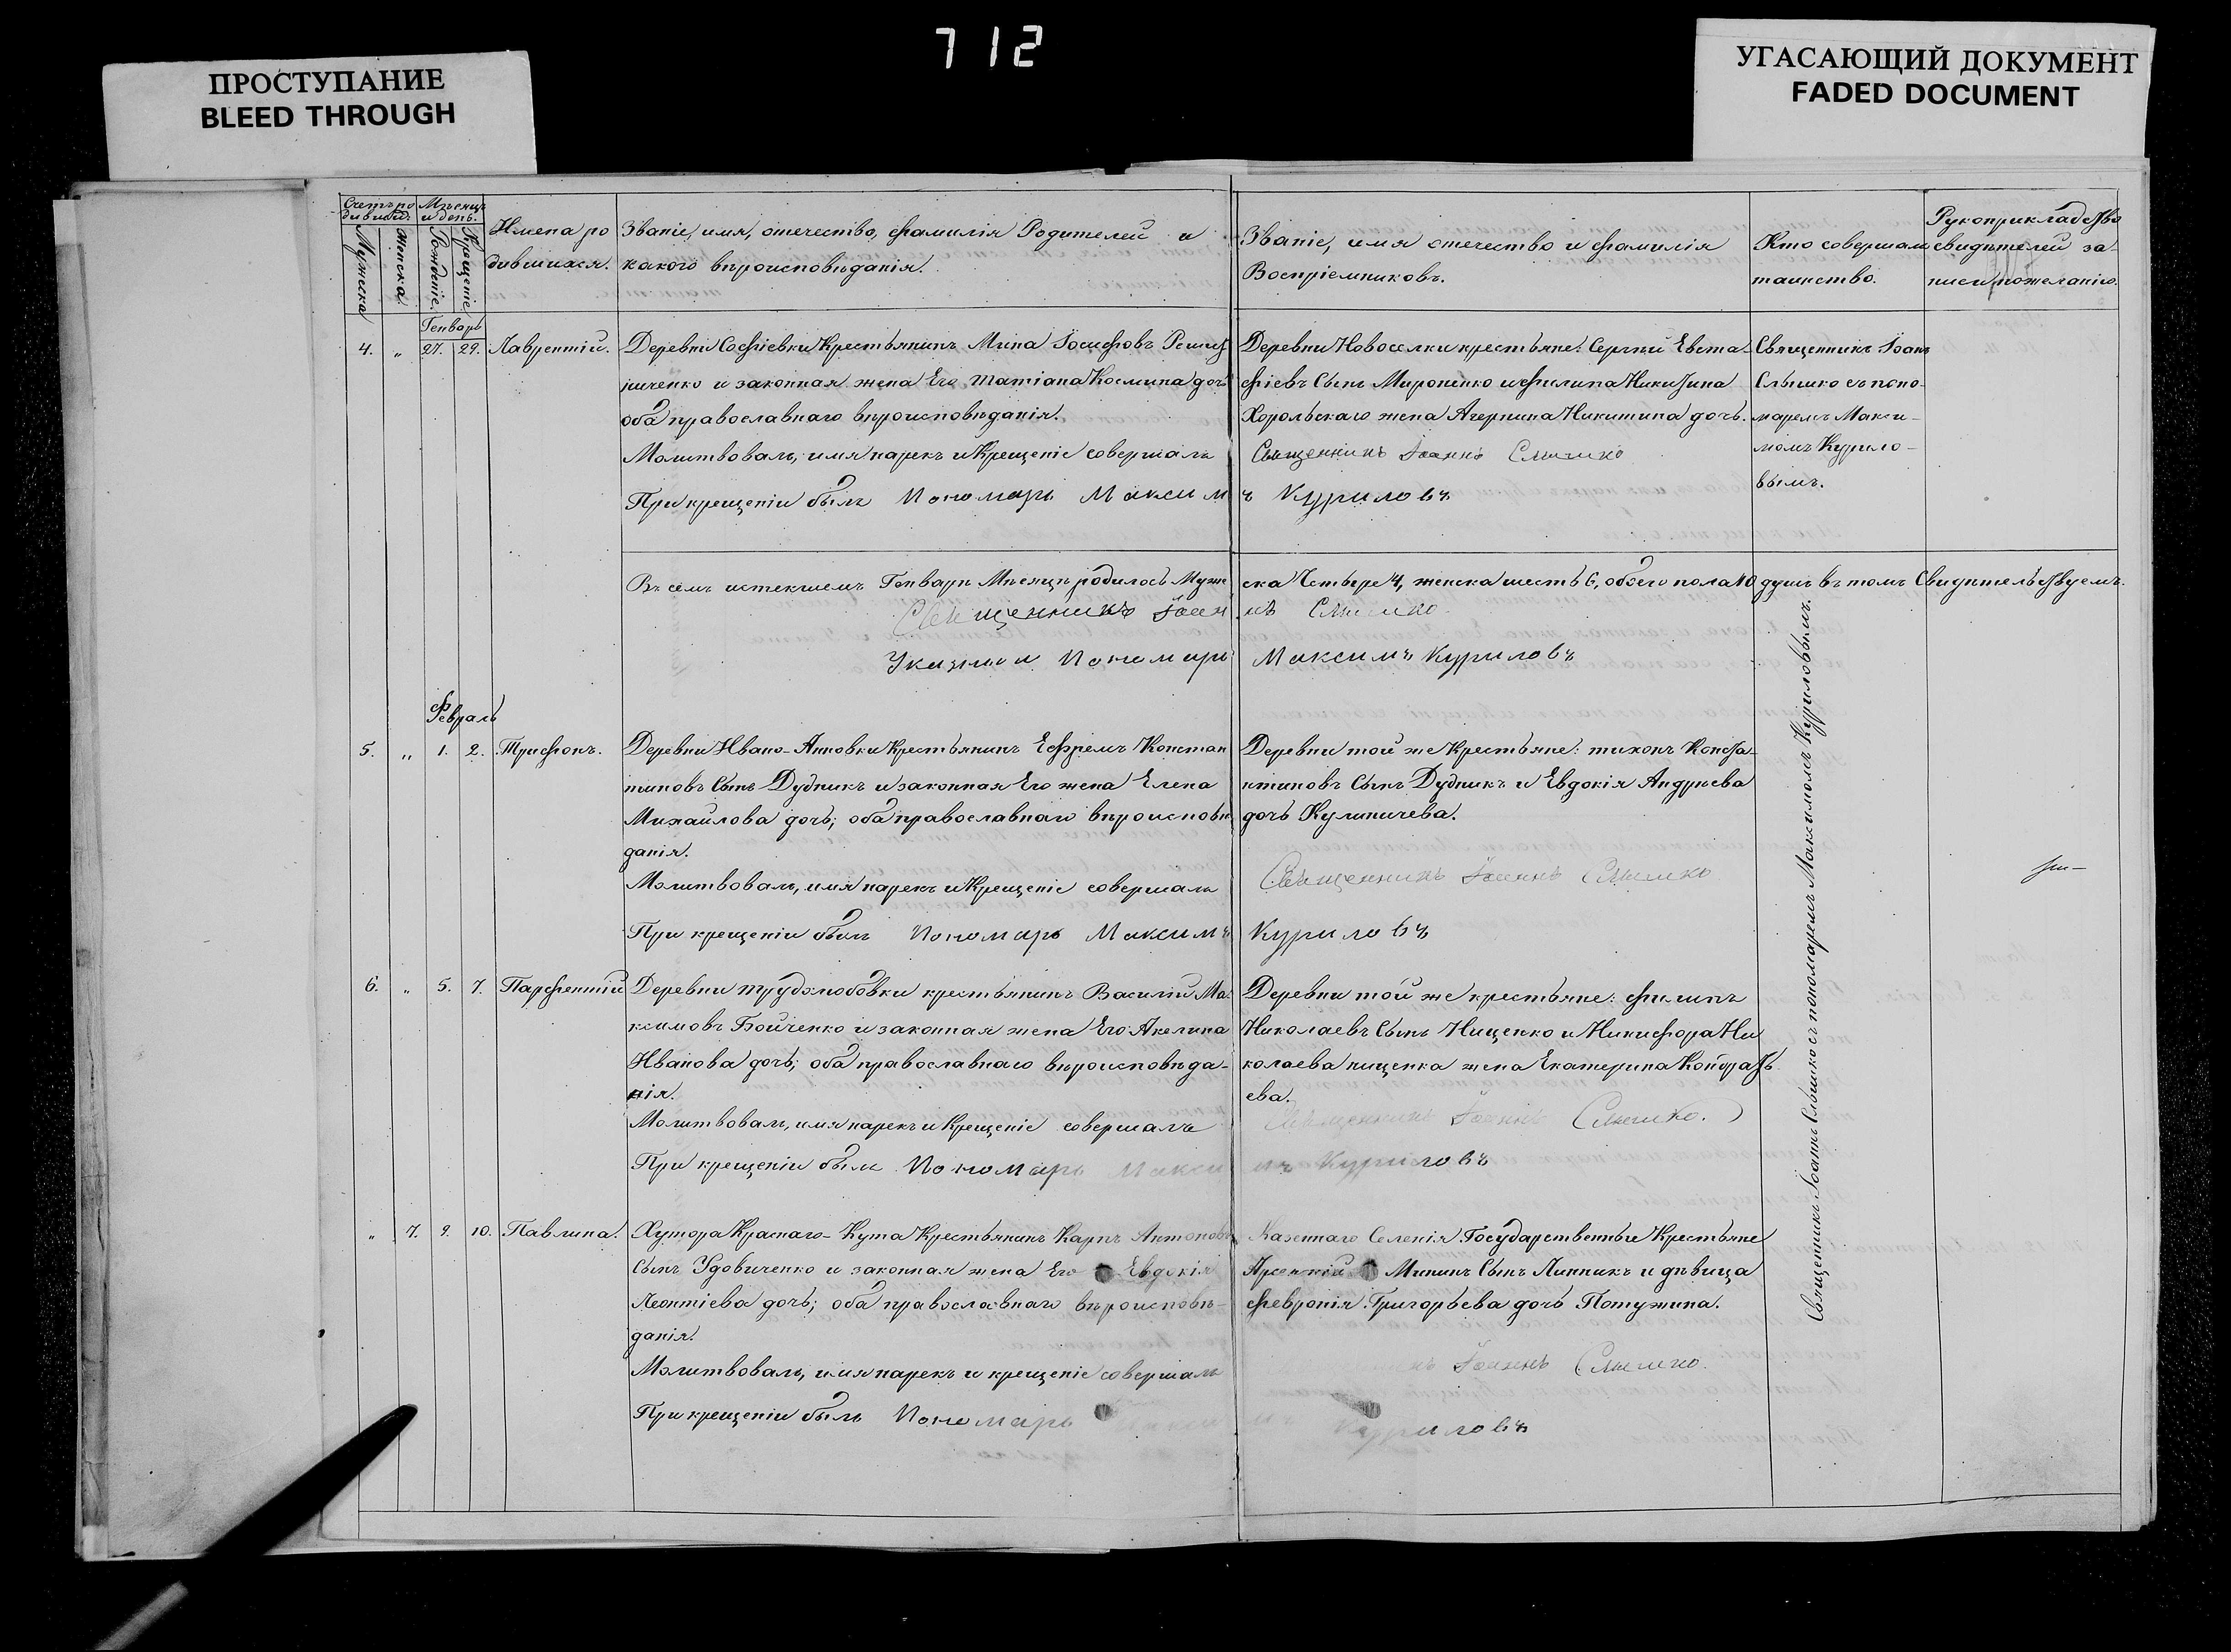 712
ПРОСТУПАНИЕ
BLEED THROUGH
УГАСАЮЩИЙ ДОКУМЕНТ
FADED DOCUMENT
Счетъ ро
дивших.
Мѣсяцъ
и день.
Мужеска
Женска.
Рожденіе.
Крещеніе
Имена ро
дившихся.
Званіе, имя, отечество, фамилія Родителей и
какого вѣроисповѣданія.
Званіе, имя отечество и фамилія
Воспріемниковъ.
Кто совершалъ
таинство.
Рукоприкладство
свидѣтелей за-
писи по желанію.
Генварь
4. „ 27. 29. Лаврентій.
Деревни Софіевки Крестьянинъ Мина Іосифовъ
и законная жена Его Татіана Космина дочь
оба православнаго вѣроисповѣданія.
Молитвовалъ, имя нарекъ и Крещеніе совершалъ
При крещеніи былъ Пономарь Максим
Деревни Новоселки крестьяне: Сергѣй Евста-
фіевъ Сынъ Мироненко и Филипа Никитина
Хорольскаго жена Агрепина Никитина дочь.
Священникъ Іоаннъ Слышко
ъ Куриловъ
Священникъ Іоаннъ
Слышко съ поно-
маремъ Макси-
момъ Курило-
вымъ.
Въ семъ истекшемъ Генварѣ Мѣсяцѣ родилось Муже
ска Четыре 4, женска шесть 6, обоего пола 10 душъ въ томъ Свидѣтельствуемъ.
Священникъ Іоан
нъ Слышко
Указной Пономарь
Максимъ Куриловъ
Февраль
5. „ 1. 2. Трифонъ.
Деревни Ивано-Анновки Крестьянинъ Ефремъ Констан
тиновъ Сынъ Дудникъ и законная Его жена Елена
Михайлова дочь; оба православнаго вѣроисповѣ
данія.
Молитвовалъ, имя нарекъ и Крещеніе совершалъ
При крещеніи былъ Пономарь Максимъ
Деревни той же Крестьяне: Тихонъ Конста-
нтиновъ Сынъ Дудникъ и Евдокія Андрѣева
дочь Кулиничева.
Священникъ Іоаннъ Слышко
Куриловъ
6. „ 5. 7. Парфентій
Деревни Трудолюбовки крестьянинъ Василій Ма-
ксимовъ Бойченко и законная жена Его Акелина
Иванова дочь; оба православнаго вѣроисповѣда-
нія.
Молитвовалъ, имя нарекъ и Крещеніе совершалъ
При крещеніи былъ Пономарь Макси
Деревни той же крестьяне: Филипъ
Николаевъ Сынъ Нищенко и Никифора Ни
колаева нищенка жена Екатерина Кондрать
ева.
Священникъ Іоаннъ Слышко.
мъ Куриловъ
„ 7. 9. 10. Павлина.
Хутора Краснаго-Кута Крестьянинъ Карпъ Антоновъ
Сынъ Удовиченко и законная жена Его Евдокія
Леонтіева дочь; оба православнаго вѣроисповѣ-
данія.
Молитвовалъ, имя нарекъ и крещеніе совершалъ
При крещеніи былъ Пономарь
Казеннаго Селенія Государственные Крестьяне
Арсеній Мининъ Сынъ Линникъ и дѣвица
Февронія Григорьева дочь Потужина.
Іоаннъ Слышко.
Куриловъ
Священникъ Іоаннъ Слышко съ пономаремъ Максимомъ Куриловымъ.